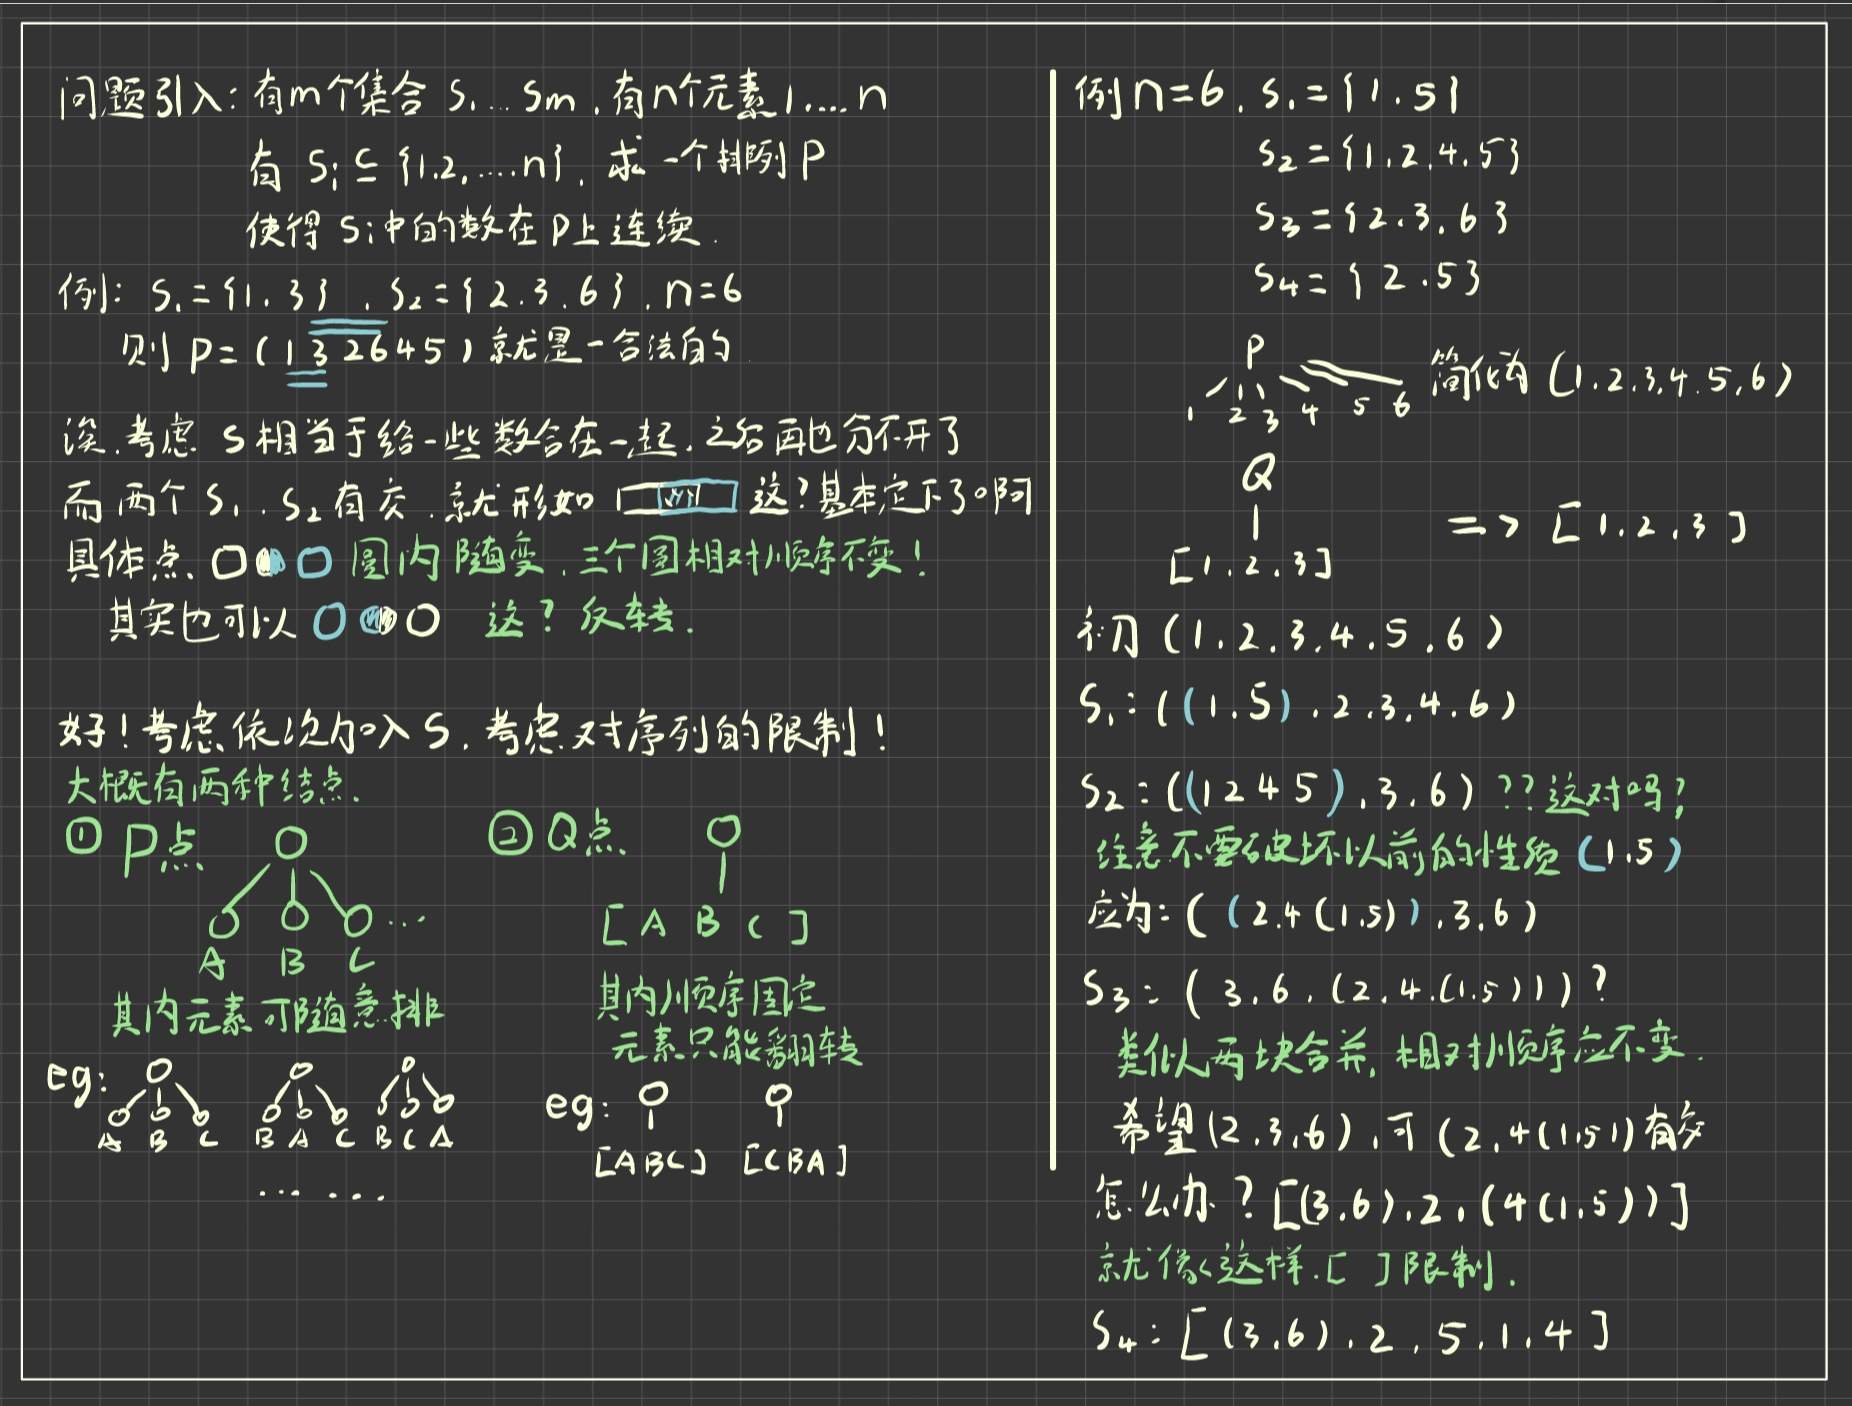 问题引入：有m个集合 S₁...Sm，有n个元素1....n
有 Sᵢ⊆{1.2,....n}，求一个排列P
使得 Sᵢ中的数在P上连续.
例：S₁={1.3}，S₂={2.3.6}，n=6
则 P=(132645) 就是一合法的.
考虑 S相当于给一些数合在一起，之后再也分不开了
而两个 S₁，S₂有交，就形如 这？基本定下了啊
具体点 圆内随变，三个圆相对顺序不变！
其实也可以 这？反转.
好！考虑依次加入S，考虑对序列的限制！
大概有两种结点.
① P点
A B C ...
其内元素可随意排
eg:
A B C B A C B C A
... ...
② Q点
[A B C]
其内顺序固定
元素只能翻转
eg:
[ABC] [CBA]
例 n=6. S₁={1.5}
S₂={1.2.4.5}
S₃={2.3.6}
S₄={2.5}
P
1 2 3 4 5 6 简化为 (1.2.3.4.5.6)
Q
[1.2.3] => [1.2.3]
初 (1.2.3.4.5.6)
S₁: ((1.5).2.3.4.6)
S₂: ((1245).3.6) ??这对吗?
注意不要破坏以前的性质 (1.5)
应为: ((2.4(1.5)).3.6)
S₃: (3.6.(2.4.(1.5)))?
类似两块合并，相对顺序应不变.
希望(2.3.6)，可(2,4(1,5))有交
怎么办? [(3.6).2.(4(1.5))]
就像这样.[ ]限制.
S₄: [(3.6).2.5.1.4]